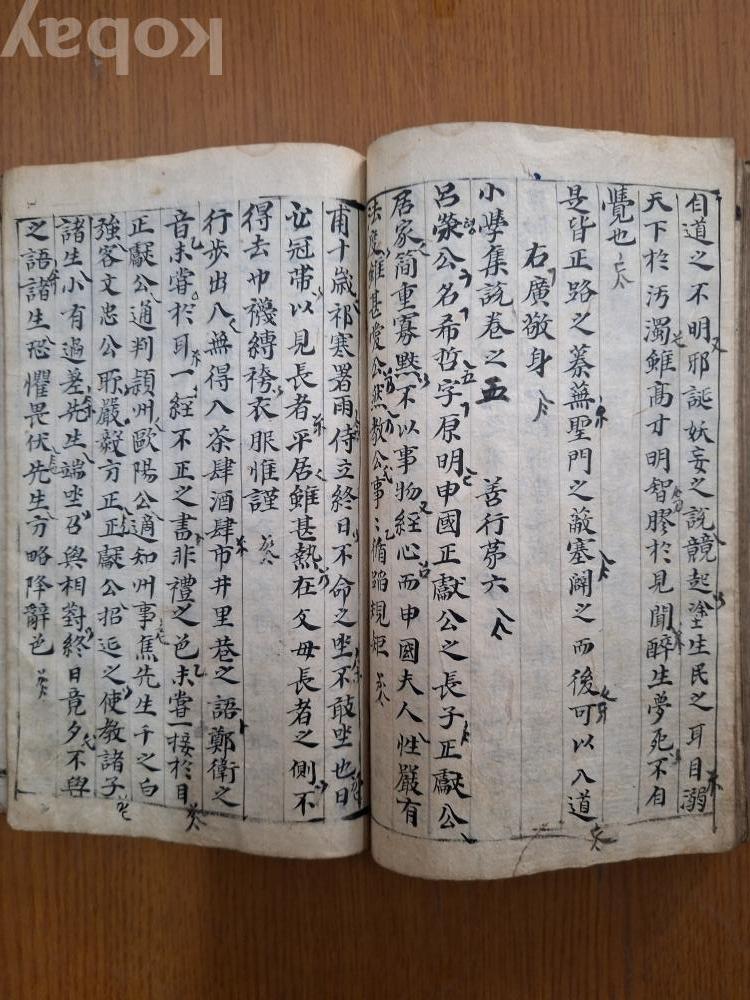 kobay
自道之不明邪誕妖妄之說競起塗生民之耳目溺
天下於汚濁雖高才明智膠於見聞醉生夢死不自
覺也
是皆正路之蓁蕪聖門之蔽塞闢之而後可以入道
右廣敬身
小學集說卷之五 善行苐六
呂滎公名希哲字原明申國正獻公之長子正獻公
居家簡重寡默不以事物經心而申國夫人性嚴有
法度雖甚愛公然敎公事〻循蹈規矩
甫十歲祁寒暑雨侍立終日不命之坐不敢坐也日
必冠帶以見長者平居雖甚熱在父母長者之側不
得去巾襪縛袴衣服惟謹
行步出入無得入茶肆酒肆市井里巷之語鄭衛之
音未嘗於耳一經不正之書非禮之色未嘗一接於目
正獻公通判潁州歐陽公適知州事焦先生千之伯
強客文忠公所嚴毅方正正獻公招延之使敎諸子
諸生小有過差先生端坐召與相對終日竟夕不與
之語諸生恐懼畏伏先生方略降辭色